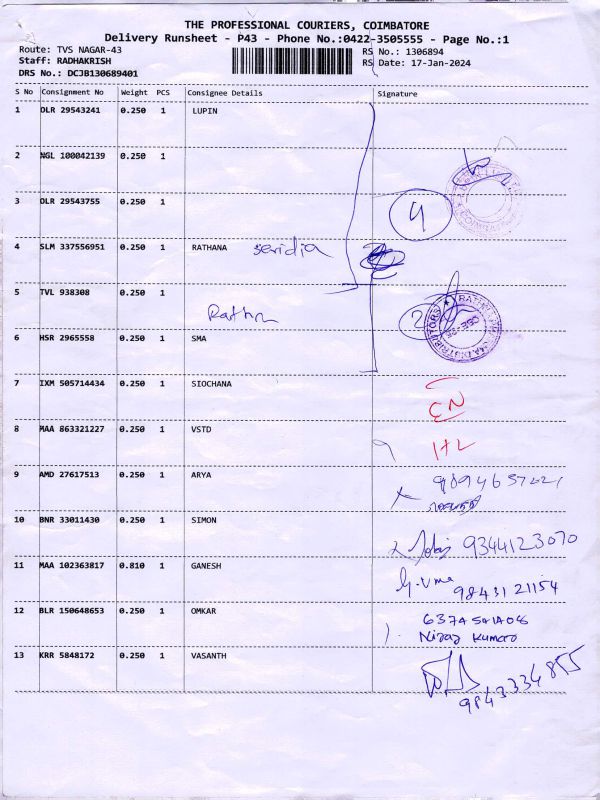 THE PROFESSIONAL COURIERS, COIMBATORE
Delivery Runsheet - P43 - Phone No.:0422-3505555 - Page No.:1
Route: TVS NAGAR-43 RS No.: 1306894
Staff: RADHAKRISH RS Date: 17-Jan-2024
DRS No.: DCJB130689401
S No Consignment No Weight PCS Consignee Details Signature
1 DLR 29543241 0.250 1 LUPIN
2 NGL 100042139 0.250 1
3 DLR 29543755 0.250 1
4 SLM 337556951 0.250 1 RATHANA
5 TVL 938308 0.250 1
Rathn
6 HSR 2965558 0.250 1 SMA
7 IXM 505714434 0.250 1 SIOCHANA
8 MAA 863321227 0.250 1 VSTD
9 AMD 27617513 0.250 1 ARYA
10 BNR 33011430 0.250 1 SIMON 9344123070
11 MAA 102363817 0.810 1 GANESH
G.Uma 9843121154
12 BLR 150648653 0.250 1 OMKAR
13 KRR 5848172 0.250 1 VASANTH
9843334855